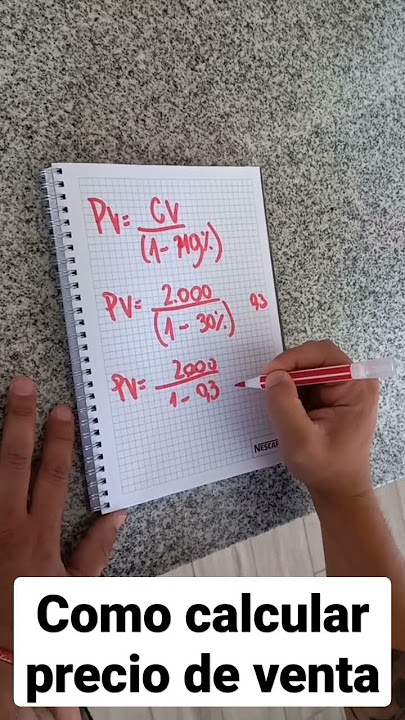 PV= CV
(1- Mg%)
PV= 2.000
(1- 30%) 0,3
PV= 2000
1- 0,3
NESCAF
Como calcular
precio de venta